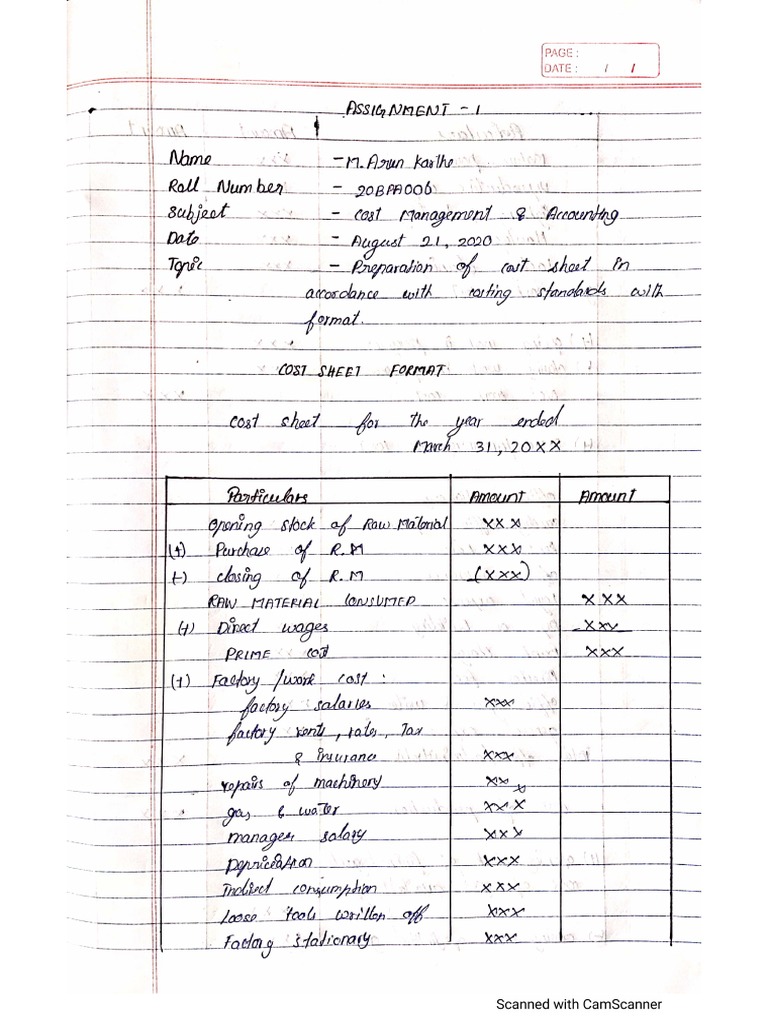 PAGE :
DATE : / /
ASSIGNMENT - 1
Name - M. Arun Karthe
Roll Number - 20BPA006
Subject - Cost Management & Accounting
Date - August 21, 2020
Topic - Preparation of cost sheet in
accordance with costing standards with
format.
COST SHEET FORMAT
Cost sheet for the year ended
March 31, 20XX
Particulars Amount Amount
Opening stock of Raw Material xxx
(+) Purchase of R.M xxx
(-) closing of R.M (xxx)
RAW MATERIAL CONSUMED xxx
(+) Direct wages xxx
PRIME Cost xxx
(+) Factory /work cost :
factory salaries xxx
factory rents, rates, Tax
& insurance xxx
repairs of machinery xxx
gas & water xxx
manager salary xxx
Depriciation xxx
Indirect consumption xxx
Loose tools written off xxx
Factory stationary xxx
Scanned with CamScanner